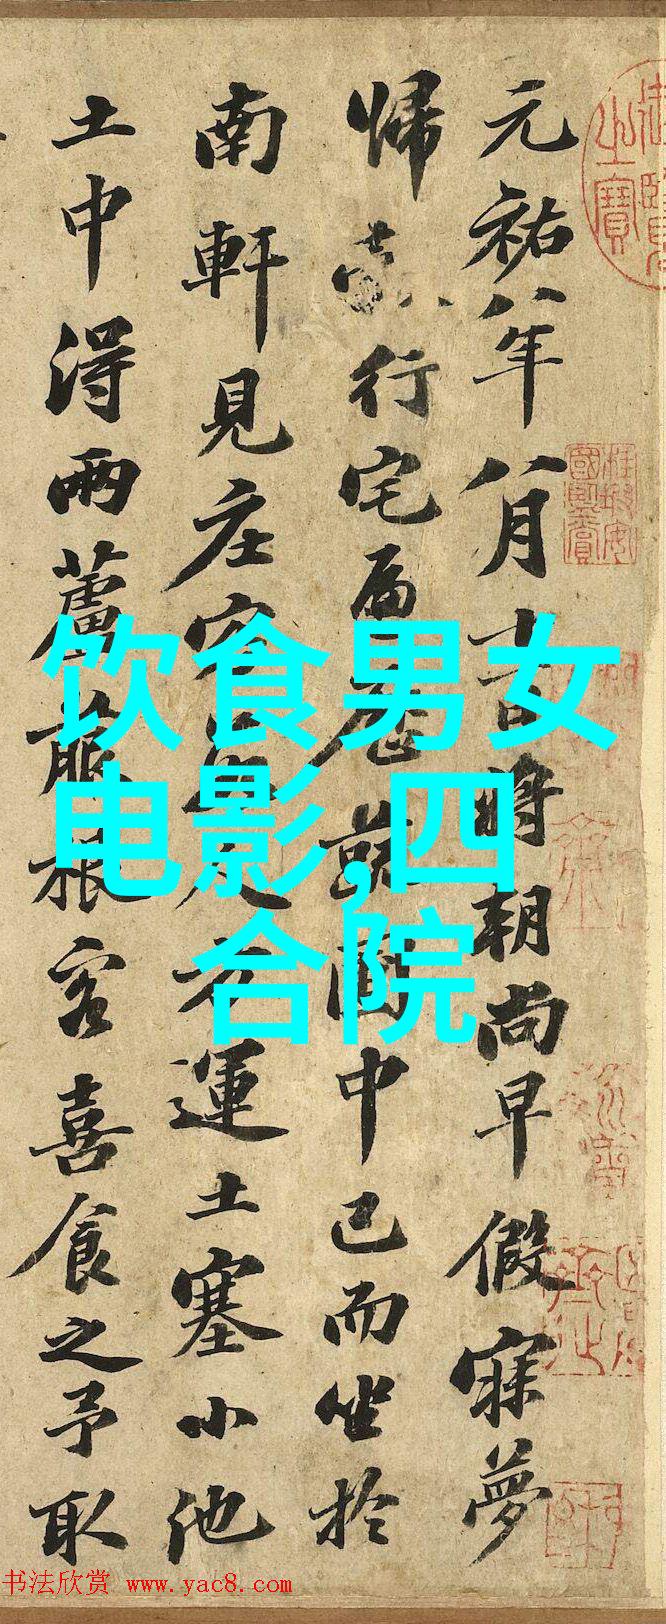 元祐八年八月十一日將朝尚早假寐夢
歸行宅遍歷蔬圃中已而坐於
南軒見庄客數人方運土塞小池
土中得兩蘆菔根客喜食之予取
饮食男女
电影,四
合院
书法欣赏 www.yac8.com